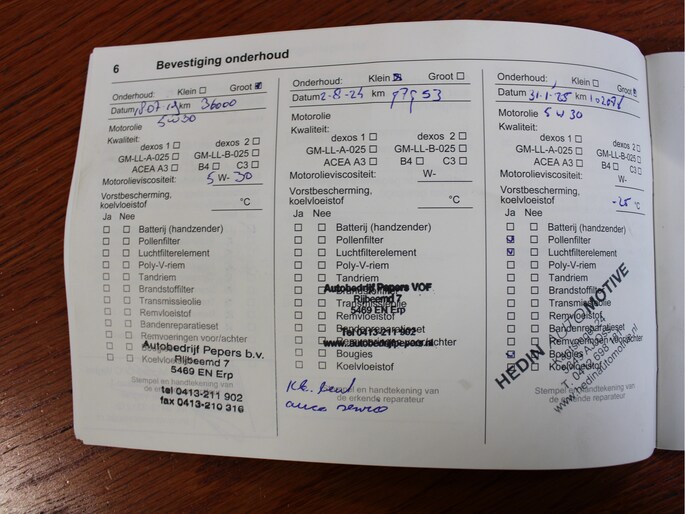 6 Bevestiging onderhoud
Onderhoud: Klein ☐ Groot ☑
Datum km 36000
Motorolie
5W30
Kwaliteit:
dexos 1 ☐ dexos 2 ☐
GM-LL-A-025 ☐ GM-LL-B-025 ☐
ACEA A3 ☐ B4 ☐ C3 ☐
Motorolieviscositeit: 5 W- 30
Vorstbescherming,
koelvloeistof °C
Ja Nee
☐ ☐ Batterij (handzender)
☐ ☐ Pollenfilter
☐ ☐ Luchtfilterelement
☐ ☐ Poly-V-riem
☐ ☐ Tandriem
☐ ☐ Brandstoffilter
☐ ☐ Transmissieolie
☐ ☐ Remvloeistof
☐ ☐ Bandenreparatieset
☐ ☐ Remvoeringen voor/achter
☐ ☐ Bougies
☐ ☐ Koelvloeistof
Autobedrijf Pepers b.v.
Rijbeemd 7
5469 EN Erp
Stempel en handtekening van
de erkende reparateur
tel 0413-211 902
fax 0413-210 316
Onderhoud: Klein ☒ Groot ☐
Datum 2-8-24 km
Motorolie
Kwaliteit:
dexos 1 ☐ dexos 2 ☐
GM-LL-A-025 ☐ GM-LL-B-025 ☐
ACEA A3 ☐ B4 ☐ C3 ☐
Motorolieviscositeit: W-
Vorstbescherming,
koelvloeistof °C
Ja Nee
☐ ☐ Batterij (handzender)
☐ ☐ Pollenfilter
☐ ☐ Luchtfilterelement
☐ ☐ Poly-V-riem
☐ ☐ Tandriem
☐ ☐ Brandstoffilter
☐ ☐ Transmissieolie
☐ ☐ Remvloeistof
☐ ☐ Bandenreparatieset
☐ ☐ Remvoeringen voor/achter
☐ ☐ Bougies
☐ ☐ Koelvloeistof
Autobedrijf Pepers VOF
Rijbeemd 7
5469 EN Erp
Tel 0413-211 902
www.autobedrijfpepers.nl
Stempel en handtekening van
de erkende reparateur
Onderhoud: Klein ☐ Groot ☑
Datum 31-1-25 km
Motorolie 5W30
Kwaliteit:
dexos 1 ☐ dexos 2 ☐
GM-LL-A-025 ☐ GM-LL-B-025 ☐
ACEA A3 ☐ B4 ☐ C3 ☐
Motorolieviscositeit: W-
Vorstbescherming,
koelvloeistof -25 °C
Ja Nee
☐ ☐ Batterij (handzender)
☑ ☐ Pollenfilter
☑ ☐ Luchtfilterelement
☐ ☐ Poly-V-riem
☐ ☐ Tandriem
☐ ☐ Brandstoffilter
☐ ☐ Transmissieolie
☐ ☐ Remvloeistof
☐ ☐ Bandenreparatieset
☐ ☐ Remvoeringen voor/achter
☑ ☐ Bougies
☐ ☐ Koelvloeistof
HEDIN AUTOMOTIVE
www.hedinautomotive.nl
Stempel en handtekening van
de erkende reparateur